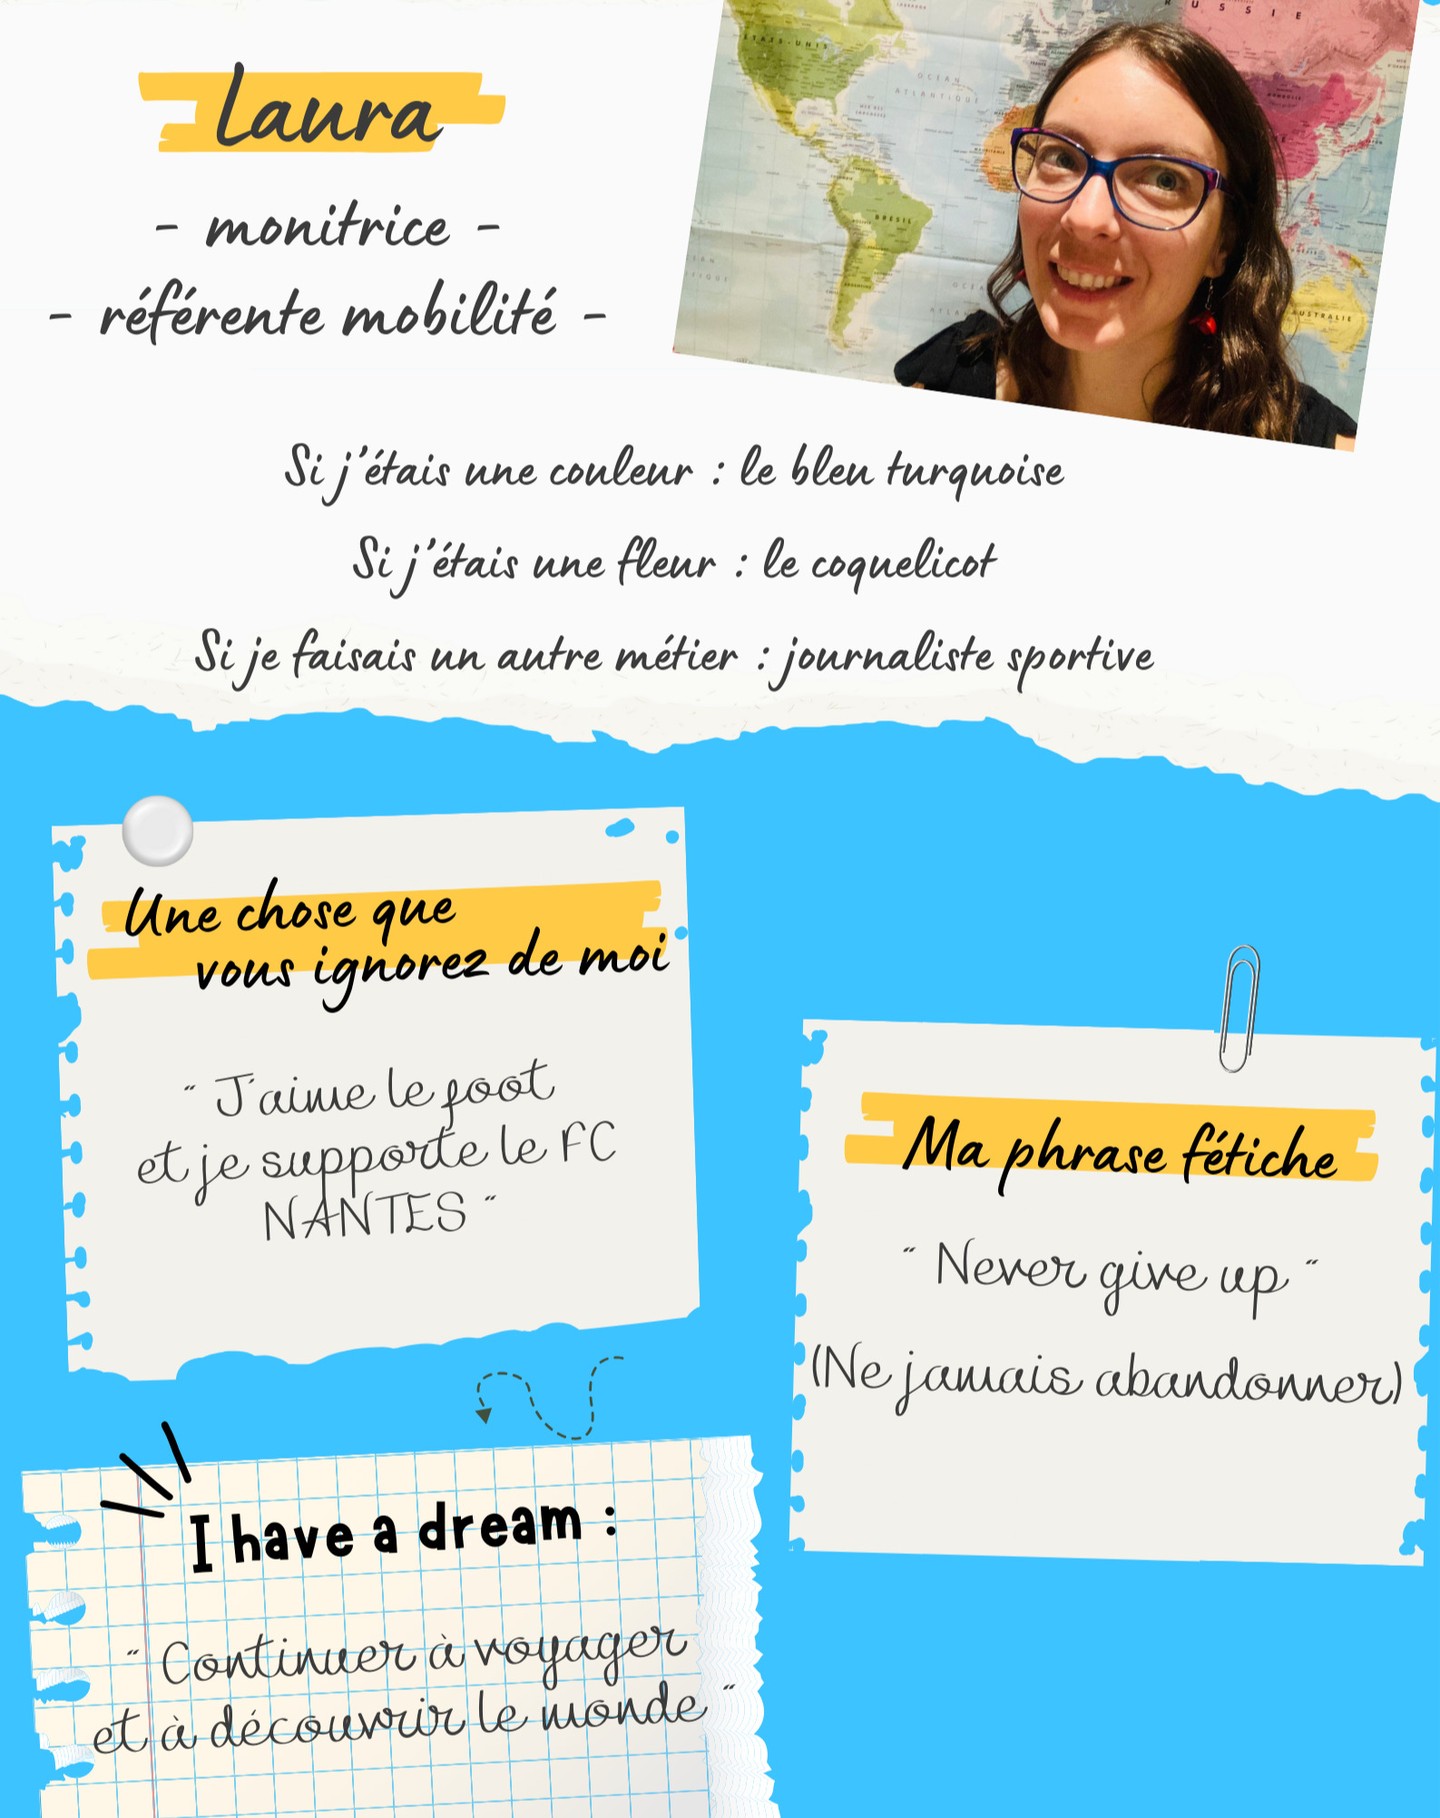 Laura
- monitrice -
- référente mobilité -
RUSSIE
ÉTATS-UNIS
OCÉAN
ATLANTIQUE
BRÉSIL
AUSTRALIE
Si j'étais une couleur : le bleu turquoise
Si j'étais une fleur : le coquelicot
Si je faisais un autre métier : journaliste sportive
Une chose que
vous ignorez de moi
" J'aime le foot
et je supporte le FC
NANTES "
Ma phrase fétiche
" Never give up "
(Ne jamais abandonner)
I have a dream :
" Continuer à voyager
et à découvrir le monde "